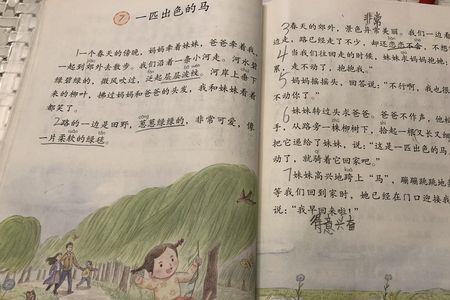 7 一匹出色的马
1一个春天的傍晚，妈妈牵着妹妹，爸爸牵着我，
一起到郊外去散步。我们沿着一条小河走。河水碧
绿碧绿的，微风吹过，泛起层层波纹。河岸上垂下
来的柳叶，拂过妈妈和爸爸的头发，我和妹妹看着
都笑了。
2路的一边是田野，葱葱绿绿的，非常可爱，像
一片柔软的绿毯。
非常
3春天的郊外，景色异常美丽。我们一边看
边走，路已经走了不少，却还恋恋不舍，不想
4当我们往回走的时候，妹妹求妈妈抱她
累，走不动了，抱抱我。"
5妈妈摇摇头，回答说："不行啊，我也很
不动你了。"
6妹妹转过头求爸爸。爸爸不作声，他松
手，从路旁一株柳树下，拾起一根又长又细
把它递给了妹妹，说："这是一匹出色的马
动了，就骑着它回家吧。"
7妹妹高兴地跨上"马"，蹦蹦跳跳地
等我们回到家时，她已经在门口迎接我
说："我早回来啦！"
得意 兴奋